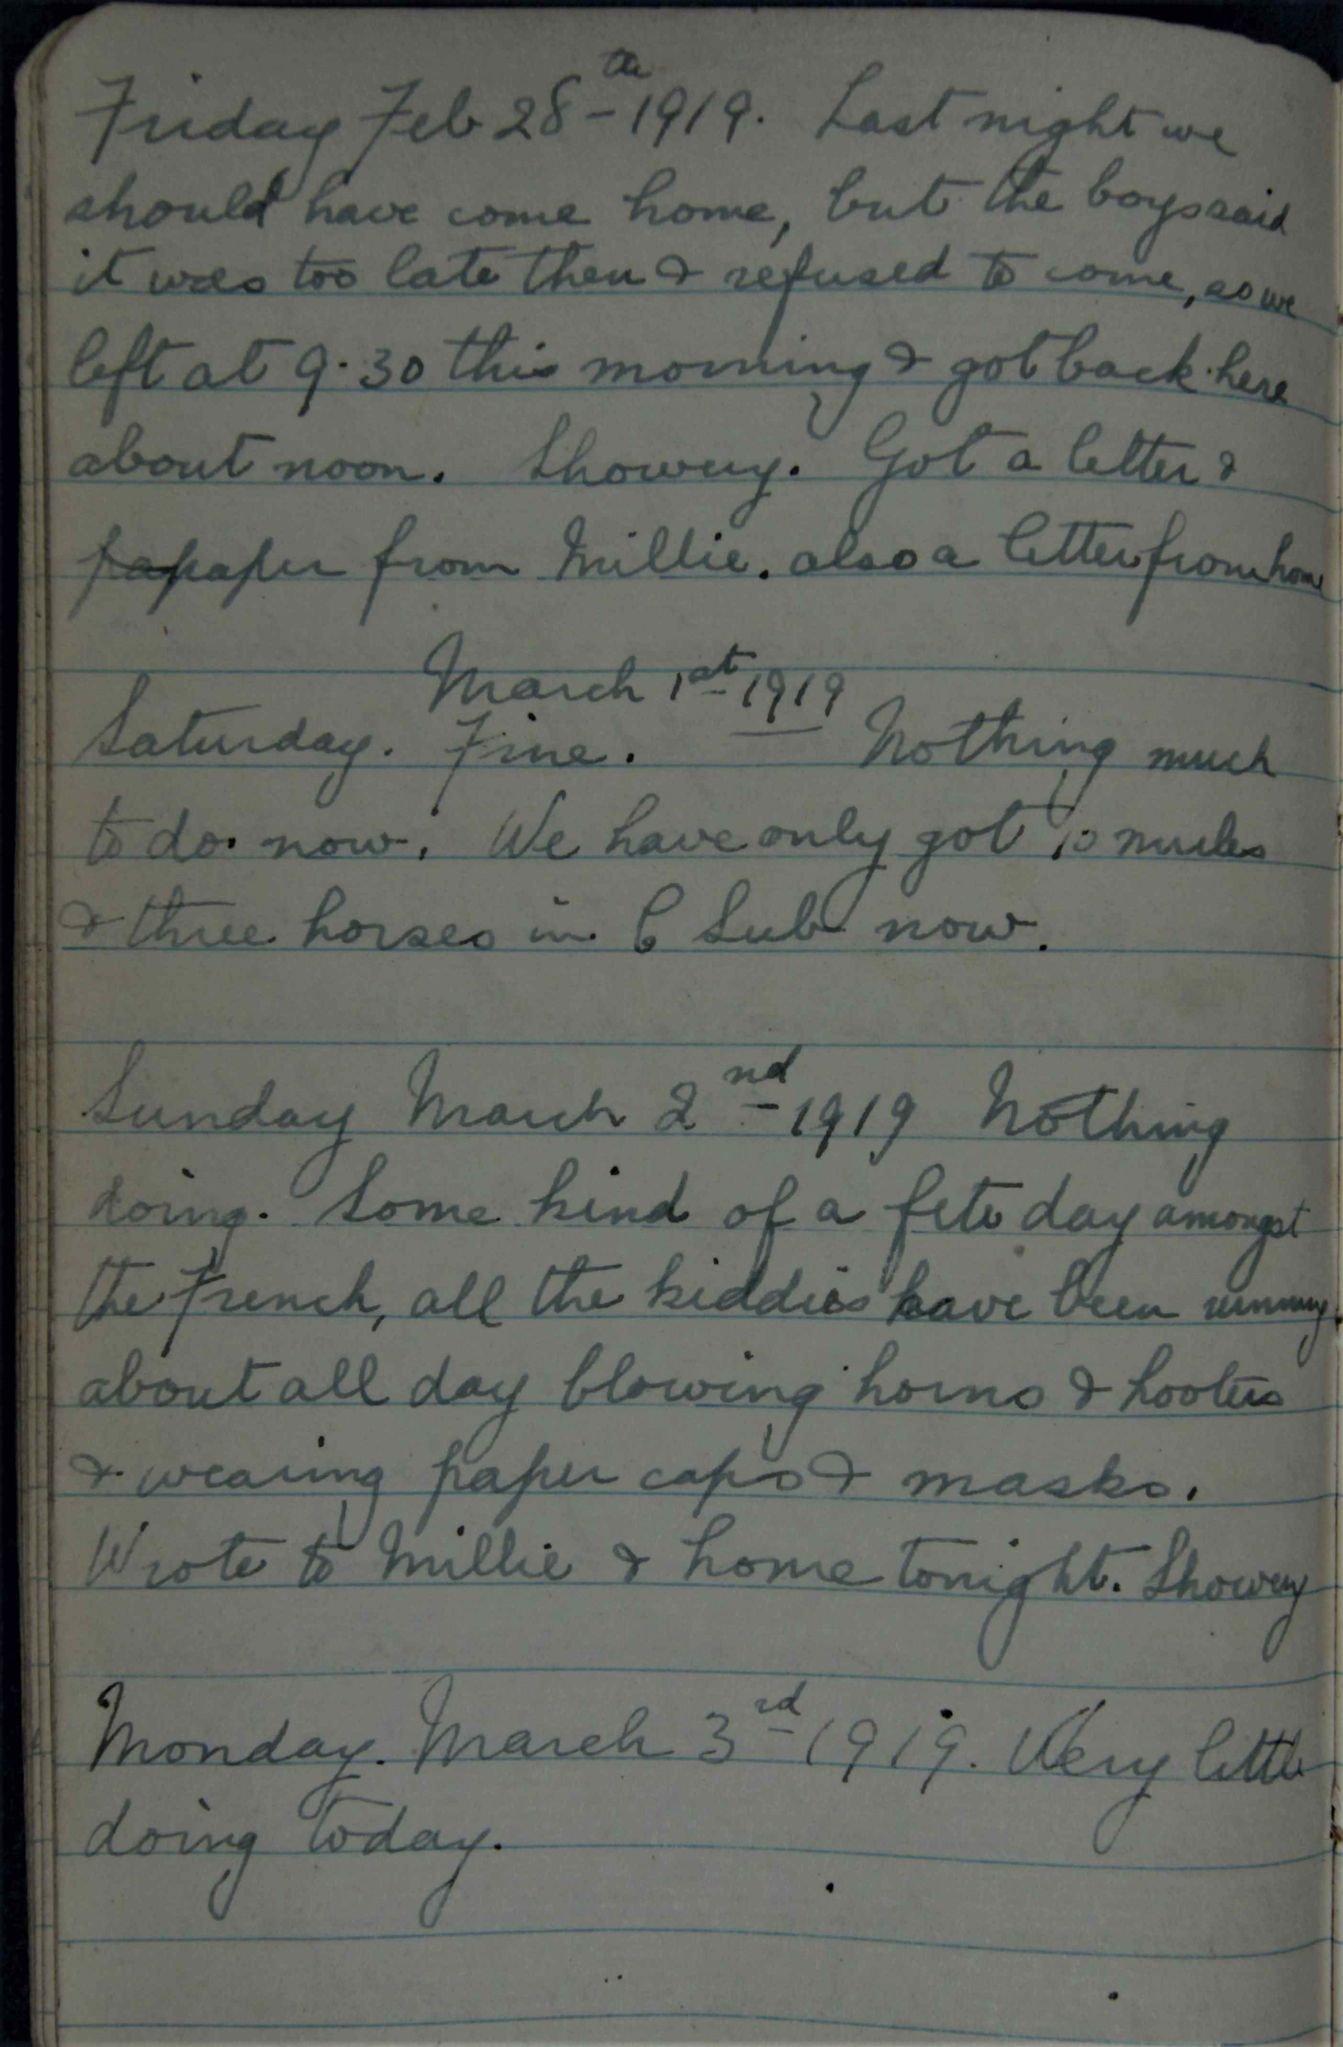 Friday Feb 28th 1919. Last night we
should have come home, but the boys said
it was too late then & refused to come, so we
left at 9.30 this morning & got back here
about noon. Showery. Got a letter &
papaper from Millie. also a letter from home
March 1st 1919
Saturday. Fine. Nothing much
to do now. We have only got 10 mules
& three horses in C Sub now.
Sunday March 2nd 1919 Nothing
doing. Some kind of a fete day amongst
the French, all the kiddies have been running
about all day blowing horns & hooters
& wearing paper caps & masks.
Wrote to Millie & home tonight. Showery
Monday. March 3rd 1919. Very little
doing today.